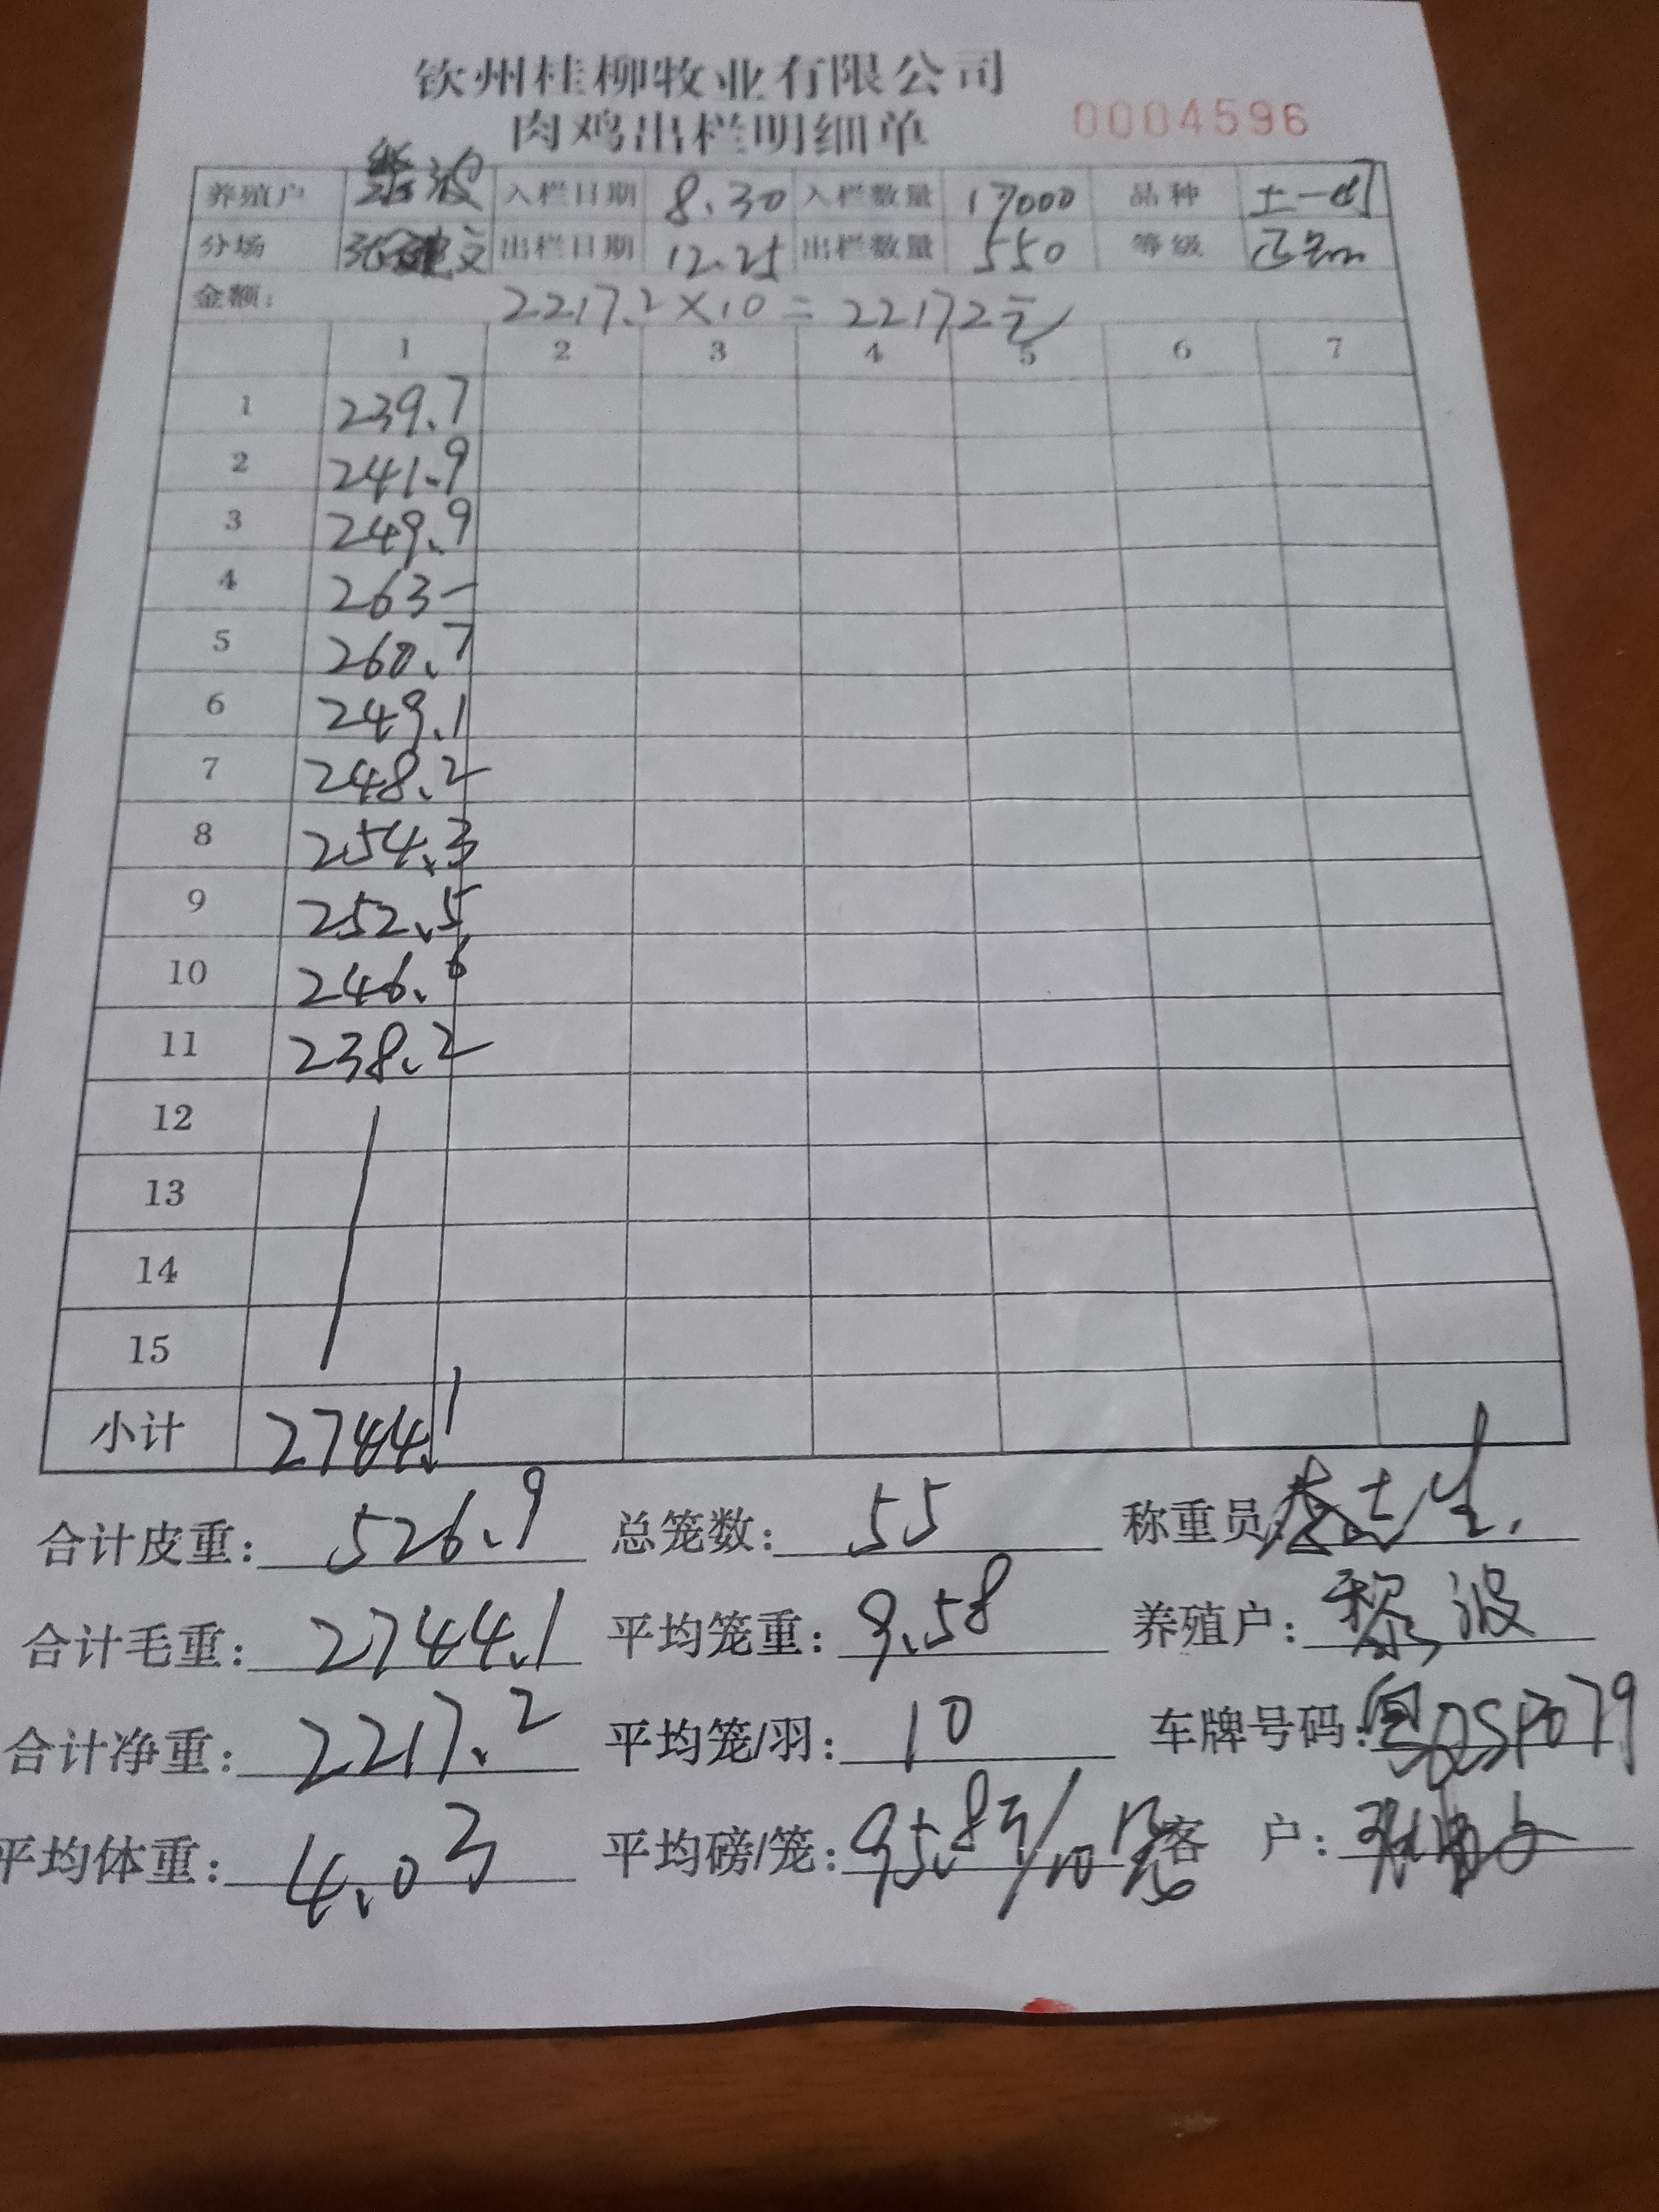 钦州桂柳牧业有限公司
肉鸡出栏明细单 0004596
养殖户 黎波 入栏日期 8.30 入栏数量 17000 品种 土一
分场 文 出栏日期 12.25 出栏数量 550 等级 正
金额: 2217.2×10=22172元
1 2 3 4 5 6 7
1 239.7
2 241.9
3 249.9
4 263-
5 260.7
6 249.1
7 248.2
8 254.3
9 252.5
10 246.6
11 238.2
12
13
14
15
小计 2744.1
合计皮重: 526.9 总笼数: 55 称重员:
合计毛重: 2744.1 平均笼重: 9.58 养殖户: 黎波
合计净重: 2217.2 平均笼/羽: 10 车牌号码: 粤
平均体重: 4.03 平均磅/笼: 95.8 客户: